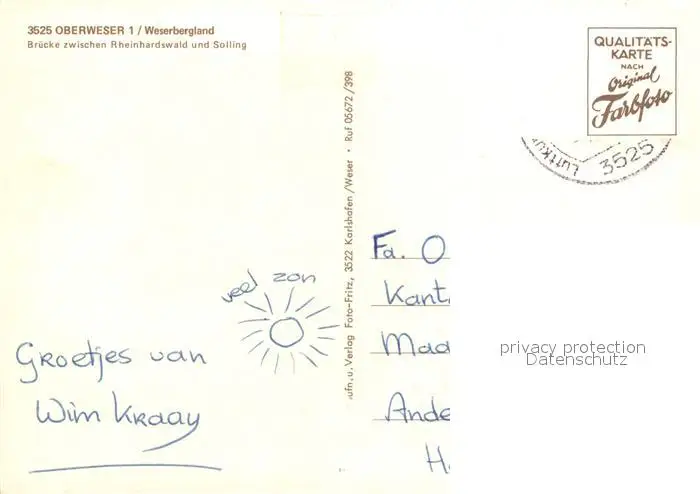 3525 OBERWESER 1 / Weserbergland
Brücke zwischen Rheinhardswald und Solling
QUALITÄTS-
KARTE
NACH
Original
Farbfoto
LUFTKU
3525
Aufn. u. Verlag Foto-Fritz, 3522 Karlshafen/Weser • Ruf 05672/398
veel zon
Groetjes van
Wim Kraay
Fa. O
Kant
Maa
Ande
H
privacy protection
Datenschutz